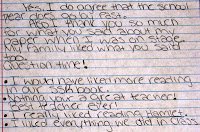 Yes, I do agree that the school
year goes on but fast.
Thank you so much
for what you said about my
paper when I was on stage.
My family liked what you said
too.
Question time!
• I would have liked more reading
in our SSR book.
• Nothing your a great teacher!
Best teacher ever!
• I really liked reading Hamlet.
• I liked everything we did in class.